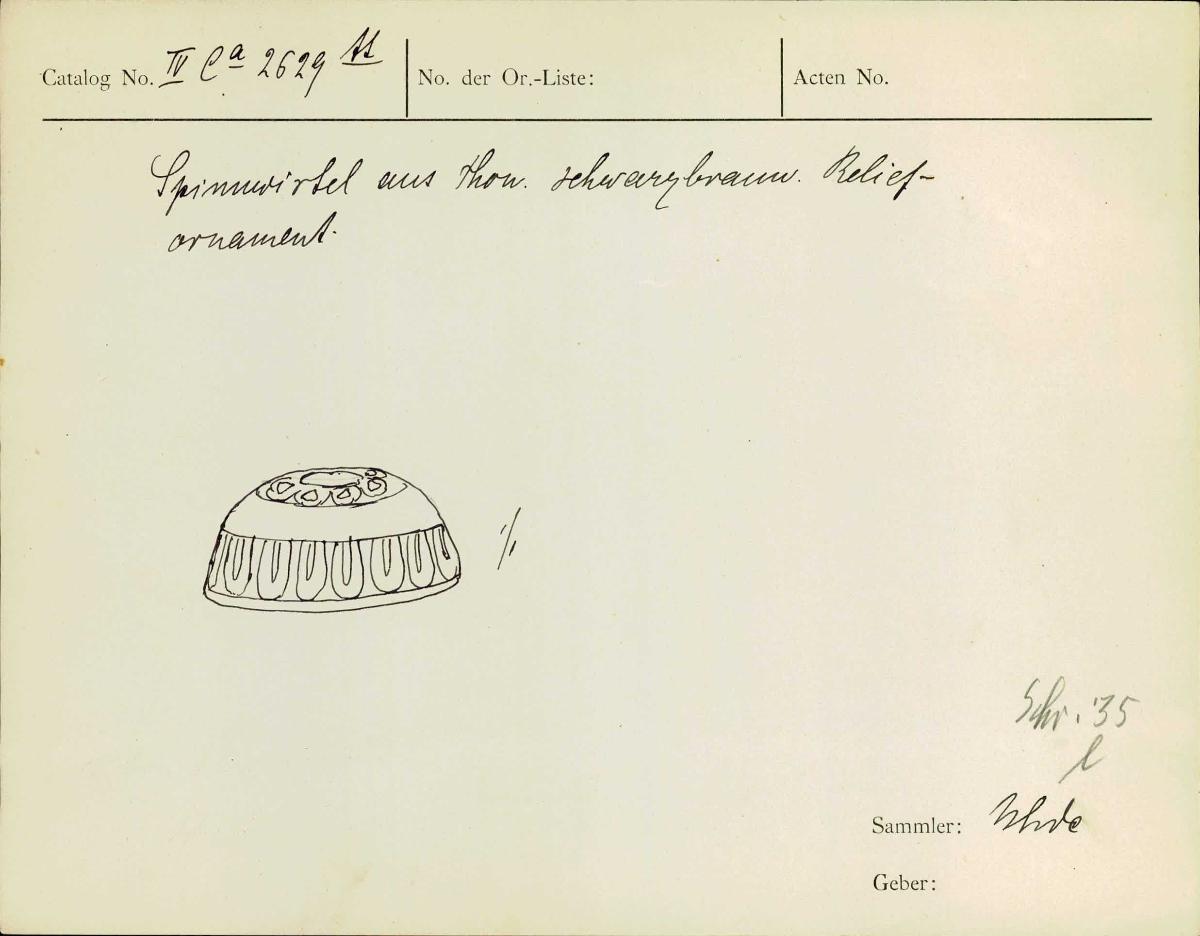 Catalog No. IV Ca 2629 tt No. der Or.-Liste: Acten No.
Spinnwirtel aus Thon. schwarzbraun. Relief-
ornament.
1/1
Schr. '35
l
Sammler: Uhde
Geber: